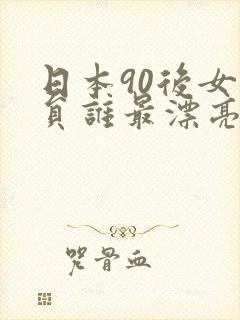 日本90後女
員誰最漂亮
咒骨血